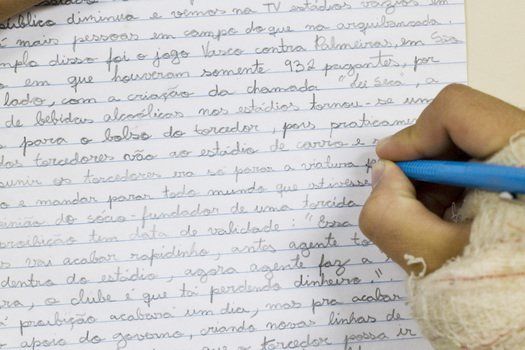 público diminua e vemos na TV estádios vazios em
mais pessoas em campo do que na arquibancada.
disso foi o jogo Vasco contra Palmeiras, em São
em que houveram somente 932 pagantes, por
lado, com a criação da chamada "Lei Seca", a
de bebidas alcoólicas nos estádios tornou-se um
para o bolso do torcedor, pois praticamen
dos torcedores vão ao estádio de carro e
os torcedores era só parar a viatura
e mandar parar todo mundo que estivesse
do sócio-fundador de uma torcida
proibição tem data de validade: "Essa
vai acabar rapidinho, antes agente to
dentro do estádio, agora agente faz a
, o clube é que tá perdendo dinheiro."
proibição acabará um dia, mas pra acabar
apoio do governo, criando novas linhas de
que o torcedor possa ir